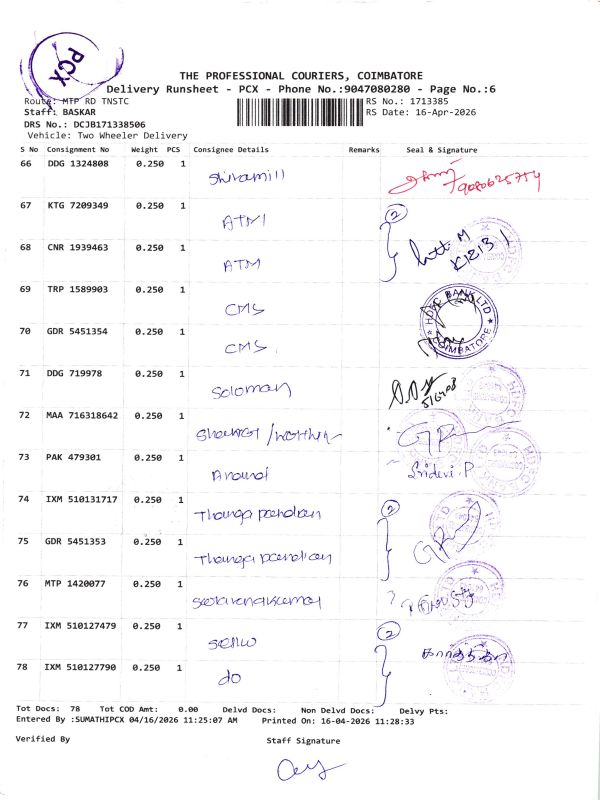 PCX
THE PROFESSIONAL COURIERS, COIMBATORE
Delivery Runsheet - PCX - Phone No.:9047080280 - Page No.:6
Route: MTP RD TNSTC
RS No.: 1713385
Staff: BASKAR
RS Date: 16-Apr-2026
DRS No.: DCJB171338506
Vehicle: Two Wheeler Delivery
S No Consignment No Weight PCS Consignee Details Remarks Seal & Signature
66 DDG 1324808 0.250 1
9080625754
67 KTG 7209349 0.250 1 ATM
2
68 CNR 1939463 0.250 1 ATM
K1213
69 TRP 1589903 0.250 1 CMS
HDFC BANK LTD
COIMBATORE
70 GDR 5451354 0.250 1 CMS
71 DDG 719978 0.250 1 Soloman
72 MAA 716318642 0.250 1
73 PAK 479301 0.250 1 Anand
Sridevi.P
74 IXM 510131717 0.250 1 Thanga pandian
2
75 GDR 5451353 0.250 1 Thanga pandian
76 MTP 1420077 0.250 1 Saravanakumar
77 IXM 510127479 0.250 1
2
78 IXM 510127790 0.250 1 do
Tot Docs: 78 Tot COD Amt: 0.00 Delvd Docs: Non Delvd Docs: Delvy Pts:
Entered By :SUMATHIPCX 04/16/2026 11:25:07 AM Printed On: 16-04-2026 11:28:33
Verified By Staff Signature